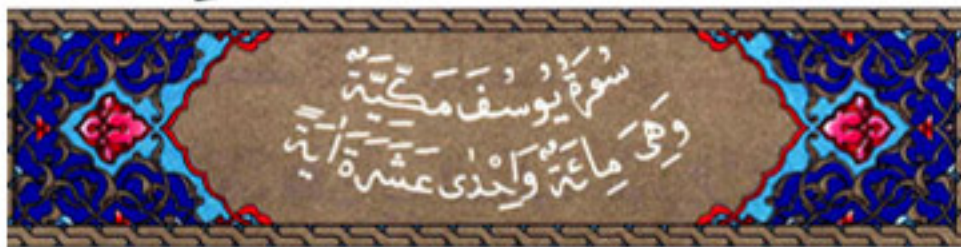 سُورَةُ يُوسُفَ مَكِّيَّةٌ
وَهِىَ مِائَةٌ وَاِحْدٰى عَشَرَةَ اٰيَةً